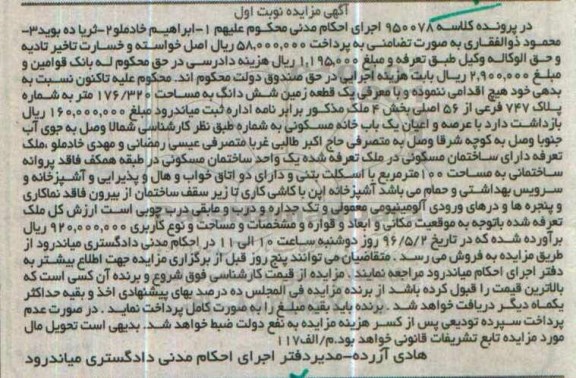 آگهی مزایده نوبت اول
در پرونده کلاسه ۹۵۰۰۷۸ اجرای احکام مدنی محکوم علیهم ۱-ابراهیم خادملو۲-ثریا ده بوید۳-
محمود ذوالفقاری به صورت تضامنی به پرداخت ۵۸,۰۰۰,۰۰۰ ریال اصل خواسته و خسارت تاخیر تادیه
و حق الوکاله وکیل طبق تعرفه و مبلغ ۱,۱۹۵,۰۰۰ ریال هزینه دادرسی در حق محکوم له بانک قوامین و
مبلغ ۲,۹۰۰,۰۰۰ ریال بابت هزینه اجرایی در حق صندوق دولت محکوم اند. محکوم علیه تاکنون نسبت به
بدهی خود هیچ اقدامی ننموده و با معرفی یک قطعه زمین شش دانگ به مساحت ۱۷۶/۳۲۰ متر به شماره
پلاک ۷۴۷ فرعی از ۵۶ اصلی بخش ۴ ملک مذکور برابر نامه اداره ثبت میاندرود مبلغ ۱۶۰,۰۰۰,۰۰۰ ریال
بازداشت دارد با عرصه و اعیان یک باب خانه مسکونی به شماره طبق نظر کارشناسی شمالا وصل به جوی آب
جنوبا وصل به کوچه شرقا وصل به متصرفی حاج اکبر طالبی غربا متصرفی عیسی رمضانی و مهدی خادملو ،ملک
تعرفه دارای ساختمان مسکونی در ملک تعرفه شده یک واحد ساختمان مسکونی در طبقه همکف فاقد پروانه
ساختمانی به مساحت ۱۰۰مترمربع با اسکلت بتنی و دارای دو اتاق خواب و هال و پذیرایی و آشپزخانه و
سرویس بهداشتی و حمام می باشد آشپزخانه اپن با کاشی کاری تا زیر سقف ساختمان از بیرون فاقد نماکاری
و پنجره ها و درهای ورودی آلومینیومی معمولی و تک جداره و درب و مابقی درب چوبی است ارزش کل ملک
تعرفه شده باتوجه به موقعیت مکانی و ابعاد و قواره و مشخصات و مساحت و نوع کاربری ۹۲۰,۰۰۰,۰۰۰ ریال
برآورده شده که در تاریخ ۹۶/۵/۲ روز دوشنبه ساعت ۱۰ الی ۱۱ در احکام مدنی دادگستری میاندرود از
طریق مزایده به فروش می رسد . متقاضیان می توانند پنج روز قبل از برگزاری مزایده جهت اطلاع بیشتر به
دفتر اجرای احکام میاندرود مراجعه نمایند . مزایده از قیمت کارشناسی فوق شروع و برنده آن کسی است که
بالاترین قیمت را قبول کرده باشد از برنده مزایده فی المجلس ده درصد بهای پیشنهادی اخذ و بقیه حداکثر
یکماه دیگر دریافت خواهد شد . برنده باید بقیه مبلغ را به صورت کامل پرداخت نماید . در صورت عدم
پرداخت سپرده تودیعی پس از کسر هزینه مزایده به نفع دولت ضبط خواهد شد. بدیهی است تحویل مال
مورد مزایده تابع تشریفات قانونی خواهد بود.م/الف۱۱۷
هادی آزرده-مدیردفتر اجرای احکام مدنی دادگستری میاندرود